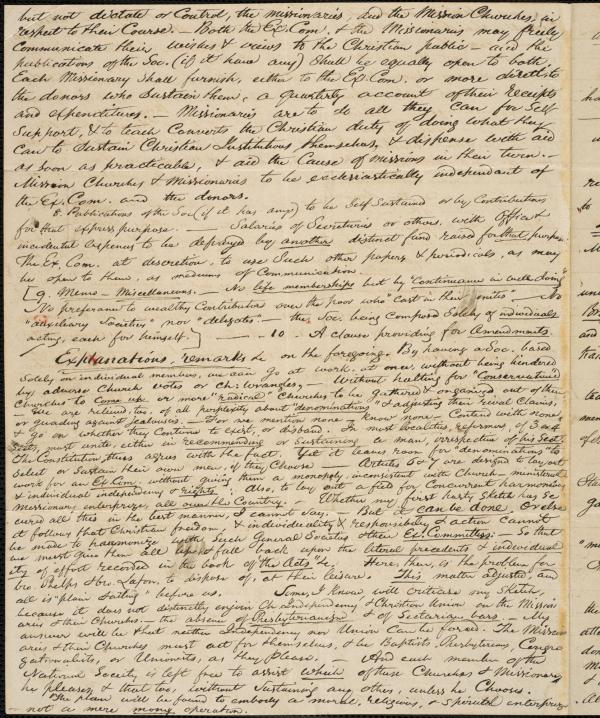 but not dictate or Control, the missionaries, and the Mission Churches, in
respect to their Course. — Both the Ex. Com. & the Missionaries may freely
Communicate their wishes & views to the Christian public — and the
publications of the Soc. (if it have any) Shall be equally open to both.
Each Missionary Shall furnish, either to the Ex. Com. or more directly to
the donors who Sustain them, a quarterly account of their receipts
and expenditures. — Missionaries are to do all they can for Self
Support, & to teach Converts the Christian duty of doing what they
can to Sustain Christian Institutions themselves, & dispense with aid
as soon as practicable, & aid the Cause of missions in their turn. —
Mission Churches & Missionaries to be ecclesiastically independent of
the Ex. Com. and the donors.
8. Publications of the Soc. (if it has any) to be Self Sustained or by Contributions
for that express purpose. — Salaries of Secretaries or others, with Office &
incidental expenses to be defrayed by another distinct fund raised for that purpose.
The Ex. Com. at discretion, to use Such other papers & periodicals, as may
be open to them, as mediums of Communication.
[9. Memo — Miscellaneous. — No life memberships but by "Continuance in well doing"
No preference to wealthy Contributors over the poor who "Cast in their mites" — No
"auxiliary Societies," nor "delegates" — the Soc. being Composed Solely of individuals
acting, each for himself.] — — 10. A clause providing for Amendments.
Explanations, remarks &c on the foregoing. By having a Soc. based
Solely on individual members, we can go at work, at once, without being hindered
by adverse Church votes or ch. wrangles, — Without halting for "Conservative
Churches to Come up or more "radical" Churches to be gathered & organized out of them
— We are relieved, too, of all perplexity about denominations, & adjusting their rival Claims,
or guarding against Jealousies. — For we mention none — know none — Contend with none
& go on whether they Continue to exist, or disband. In most localities, reformers, of 3 or 4
Sects, must unite either in recommending or Sustaining a man, irrespective of his Sect.
The Constitution thus agrees with the fact. Yet it leaves room for "denominations" to
Select or Sustain their own men, if they Choose — Articles 6 & 7 are designed to lay out
work for an Ex. Com. without giving them a monopoly, inconsistent with Church, ministerial
& individual independency & rights: also, to lay out a field for Concurrent harmonious
missionary enterprize, all over the Country. Whether my first hasty Sketch has Se
cured all this in the best manner, I cannot say. — But it can be done, or else
it follows that Christian freedom, & individuality & responsibility & action cannot
be made to harmonize with Such General Societies & their Ex. Committees: So that
we must give them all up, & fall back upon the literal precedents & individual
ity of effort recorded in the book of the Acts" &c. Here, then, is the problem for
bro Phelps & bro. Lafon, to dispose of, at their leisure. This matter adjusted, and
all is "plain Sailing" before us. Some, I know, will criticise my Sketch,
because it does not distinctly enjoin Ch. Independency & Christian Union on the Mission
aries & their Churches. — the absence of Presbyterianism & of Sectarian bars. — My
answer will be that neither Independency nor Union Can be forced. The Mission
aries & their Churches must act for themselves, & be Baptists, Presbyterians, Congre
gationalists, or Unionists, as they please. — And each member of the
National Society is left free to assist which of these Churches & Missionary
he pleases, & that too, without Sustaining any others, unless he Chooses.
The plan will be found to embody a moral, religious, & Spiritual enterprize
— not a mere money operation.